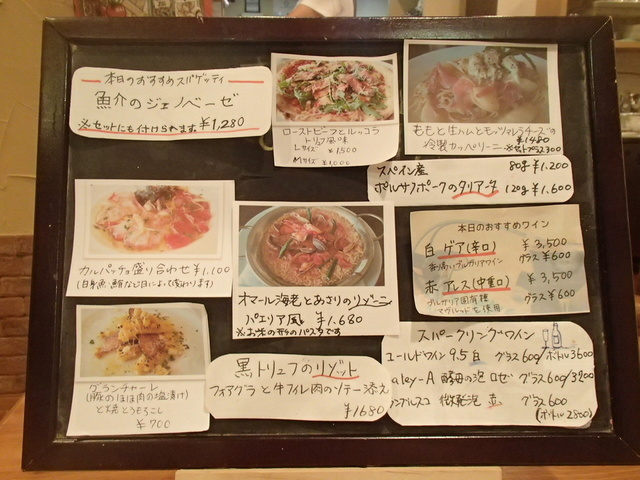 本日のおすすめスパゲッティ
魚介のジェノベーゼ
※セットにも付けられます ¥1,280
ローストビーフとルッコラ
トリュフ風味
Lサイズ ¥1,500
Mサイズ ¥1,000
ももと生ハムとモッツァレラチーズの
冷製カッペリーニ ¥1480
※セットプラス300
スペイン産 80g ¥1,200
ポルサノポークのタリアータ 120g ¥1,600
カルパッチョ盛り合わせ ¥1,100
(白身魚 鮪など日によって変わります)
オマール海老とあさりのリゾーニ
パエリア風 ¥1,680
※お米の形のパスタです
本日のおすすめワイン
白 ゲア(辛口) ¥3,500
グラス ¥600
赤 (中重口) ¥3,500
ブルガリア固有種 グラス ¥600
マヴルッドを使用
グアンチャーレ
(豚のほほ肉の塩漬け)
と焼とうもろこし
¥700
黒トリュフのリゾット
フォアグラと牛フィレ肉のソテー添え
¥1680
スパークリングワイン
ロールドワイン 9.5 白 グラス600 ボトル3600
aley-A 酵母の泡 ロゼ グラス600/3200
ンブルスコ 微発泡 赤 グラス600
(ボトル2800)